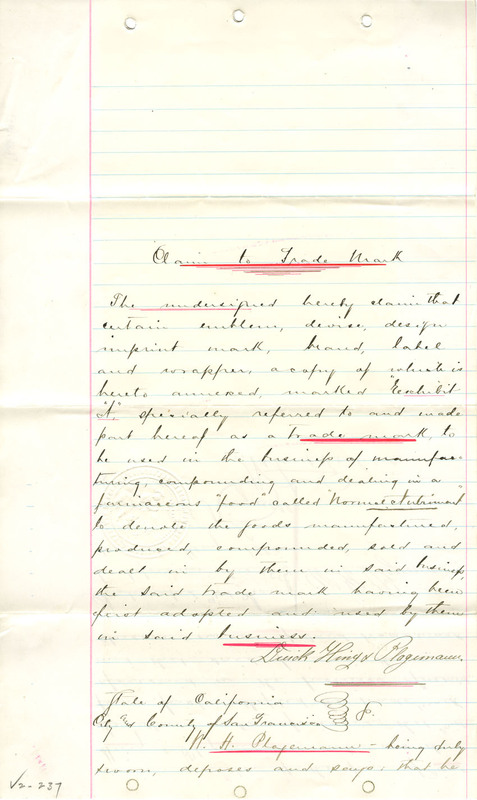 Claim to Trade Mark
The undersigned hereby claim that
certain emblem, devise, design
imprint mark, brand, label
and wrapper, a copy of which is
hereto annexed, marked "Exhibit
"A", specially referred to and made
part hereof as a trade mark, to
be used in the business of manufac-
turing, compounding and dealing in a
farinaceous "food" called "Normal Nutriment"
to denote the goods manufactured,
produced, compounded, sold and
dealt in by them in said business,
the said trade mark having been
first adopted and used by them
in said business.
King & Plagemann.
State of California
City and County of San Francisco
W. H. Plagemann - being duly
sworn, deposes and says: that he
V2-237